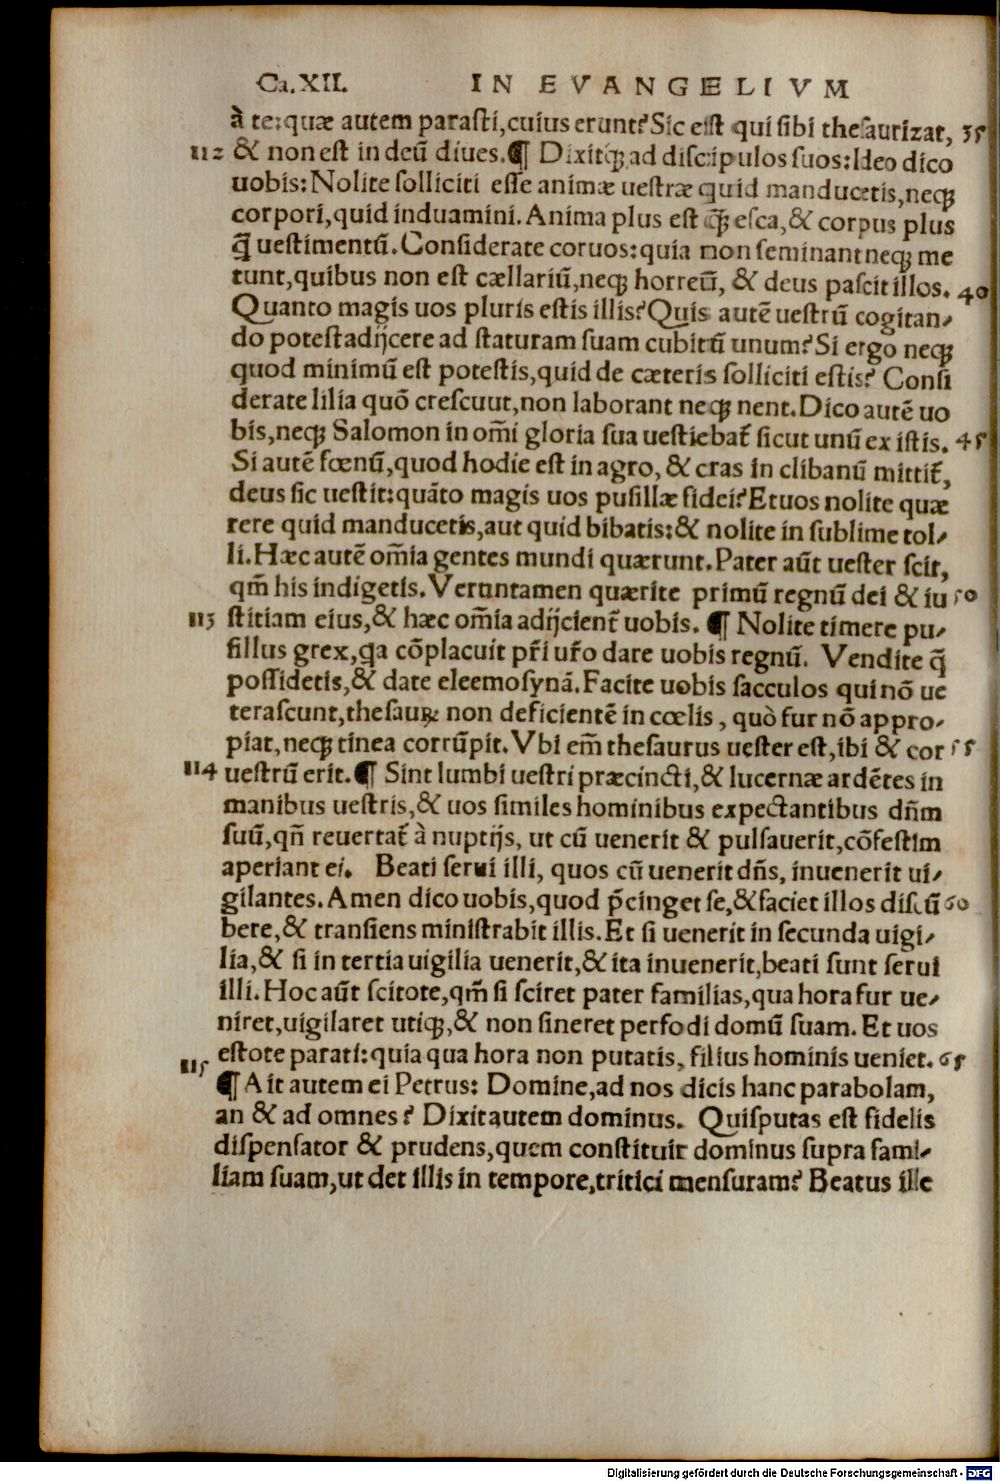 Ca. XII. IN EVANGELIVM
à te: quæ autem parasti, cuius erunt? Sic est qui sibi thesaurizat, 35
112 & non est in deū diues. ¶ Dixitqꝫ ad discipulos suos: Ideo dico
uobis: Nolite solliciti esse animæ uestræ quid manducetis, neqꝫ
corpori, quid induamini. Anima plus est q̄ꝫ esca, & corpus plus
q̄ uestimentū. Considerate coruos: quia non seminant neqꝫ me
tunt, quibus non est cællariū, neqꝫ horreū, & deus pascit illos. 40
Quanto magis uos pluris estis illis? Quis autē uestrū cogitan-
do potest adijcere ad staturam suam cubitū unum? Si ergo neqꝫ
quod minimū est potestis, quid de cæteris solliciti estis? Consi
derate lilia quō crescuut, non laborant neqꝫ nent. Dico autē uo
bis, neqꝫ Salomon in om̄i gloria sua uestiebat̃ sicut unū ex istis. 45
Si autē fœnū, quod hodie est in agro, & cras in clibanū mittit̃,
deus sic uestit: quāto magis uos pusillæ fidei? Et uos nolite quæ
rere quid manducetis, aut quid bibatis: & nolite in sublime tol-
li. Hæc autē om̄ia gentes mundi quærunt. Pater aūt uester scit,
qm̄ his indigetis. Veruntamen quærite primū regnū dei & iu 50
113 stitiam eius, & hæc om̄ia adijcient̃ uobis. ¶ Nolite timere pu-
sillus grex, qa cōplacuit pr̄i ur̄o dare uobis regnū. Vendite q̄
possidetis, & date eleemosynā. Facite uobis sacculos qui nō ue
terascunt, thesauꝝ non deficientē in cœlis, quò fur nō appro-
piat, neqꝫ tinea corrūpit. Vbi em̄ thesaurus uester est, ibi & cor 55
114 uestrū erit. ¶ Sint lumbi uestri præcincti, & lucernæ ardētes in
manibus uestris, & uos similes hominibus expectantibus dn̄m
suū, qn̄ reuertat̃ à nuptijs, ut cū uenerit & pulsauerit, cōfestim
aperiant ei. Beati serui illi, quos cū uenerit dn̄s, inuenerit ui-
gilantes. Amen dico uobis, quod p̄cinget se, & faciet illos discū 60
bere, & transiens ministrabit illis. Et si uenerit in secunda uigi-
lia, & si in tertia uigilia uenerit, & ita inuenerit, beati sunt serui
illi. Hoc aūt scitote, qm̄ si sciret pater familias, qua hora fur ue-
niret, uigilaret utiqꝫ, & non sineret perfodi domū suam. Et uos
estote parati: quia qua hora non putatis, filius hominis ueniet. 65
115 ¶ Ait autem ei Petrus: Domine, ad nos dicis hanc parabolam,
an & ad omnes? Dixit autem dominus. Quis putas est fidelis
dispensator & prudens, quem constituit dominus supra fami-
liam suam, ut det illis in tempore, tritici mensuram? Beatus ille
Digitalisierung gefördert durch die Deutsche Forschungsgemeinschaft - DFG